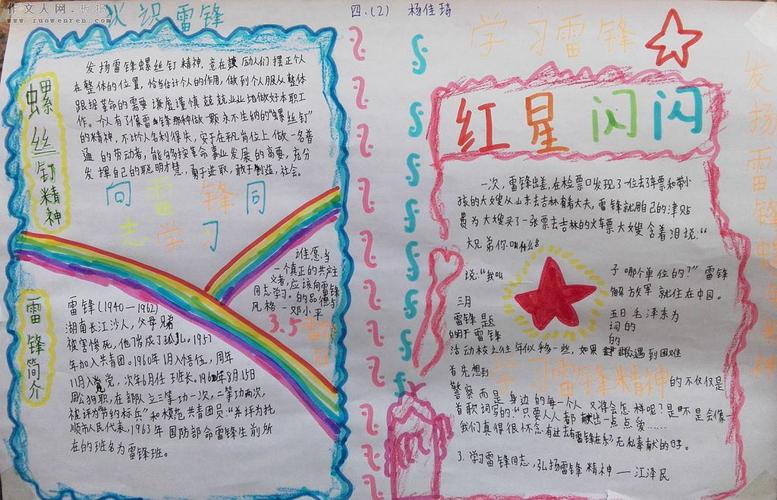 作文人网
www.zuowenren.com
认识雷锋
四.(2) 杨佳琦
学习雷锋
螺丝钉精神
发扬雷锋螺丝钉精神，意在鼓励人们摆正个人
在整体的位置，恰当估计个人的作用，做到个人服从整体
服从革命的需要谦虚谨慎兢兢业业地做好本职工
作。个人有了像雷锋那种做一颗永不生锈的"螺丝钉"
的精神，不计个人名利得失，安于在平凡岗位上做一名普
通的劳动者，能够按革命事业发展的需要，充分
发挥自己的聪明才智，勇于进取，敢于创造，社会。
向雷锋同
志学习
谁愿当
一个真正的共产主
义者，应该向雷锋
同志学习。的品德与
风格 一邓小平
3.5
雷锋简介
雷锋(1940—1962)
湖南长沙人，父母兄弟
被害惨死，他7岁成了孤儿。1957
年加入共青团。1960年1月入伍，同年
11月入党，次年6月任了班长。1962年8月15日
因公殉职，在部队立二等功一次，三等功两次，
被评为节约标兵"和模范共青团员"并评为抚
顺市人民代表，1963年国防部命雷锋生前所
在的班名为雷锋班。
红星闪闪
一次，雷锋出差，在检票口发现了一位丢了车票和带小
孩的大嫂从山东去吉林看看丈夫，雷锋就用自己的津贴
费为大嫂买了一张票去吉林的火车票大嫂含着泪说"
大兄弟你叫什么名
子哪个单位的？"雷锋
说："我叫
解放军就住在中国。
三月
五日毛泽东为
雷锋题
词的
活动校上比往年似乎 一些，如果遇到困难
首先想到
学习雷锋精神
的不仅仅是
警察而是身边的每一个人
首歌词写的："只要人人都献出一点点爱……
我们真得很怀念
无私奉献的日子。
3.学习雷锋同志，弘扬雷锋精神——江泽民
发扬雷锋